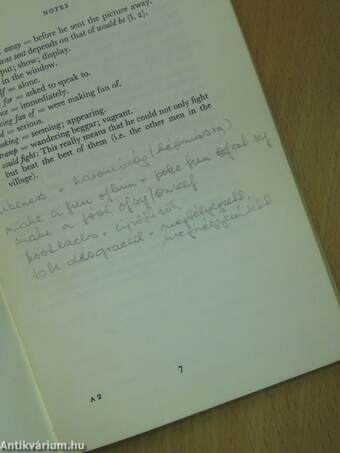 NOTES
, away = before he sent the picture away.
was sent depends on that of would be (l. 2).
put; show; display.
in the window.
lf = alone.
for = asked to speak to.
nce = immediately.
king fun of = were making fun of.
d = serious.
oking = seeming; appearing.
tramp = wandering beggar; vagrant.
could fight: This really means that he could not only fight
but beat the best of them (i.e. the other men in the
village).
likeness = hasonlóság (hasonmása)
make a fun of sum = poke fun at sy
make a fool of sy/oneself
bootlaces = cipőfűzők
to be disgraced = megbélyegzett,
A 2
7
Antikvárium.hu